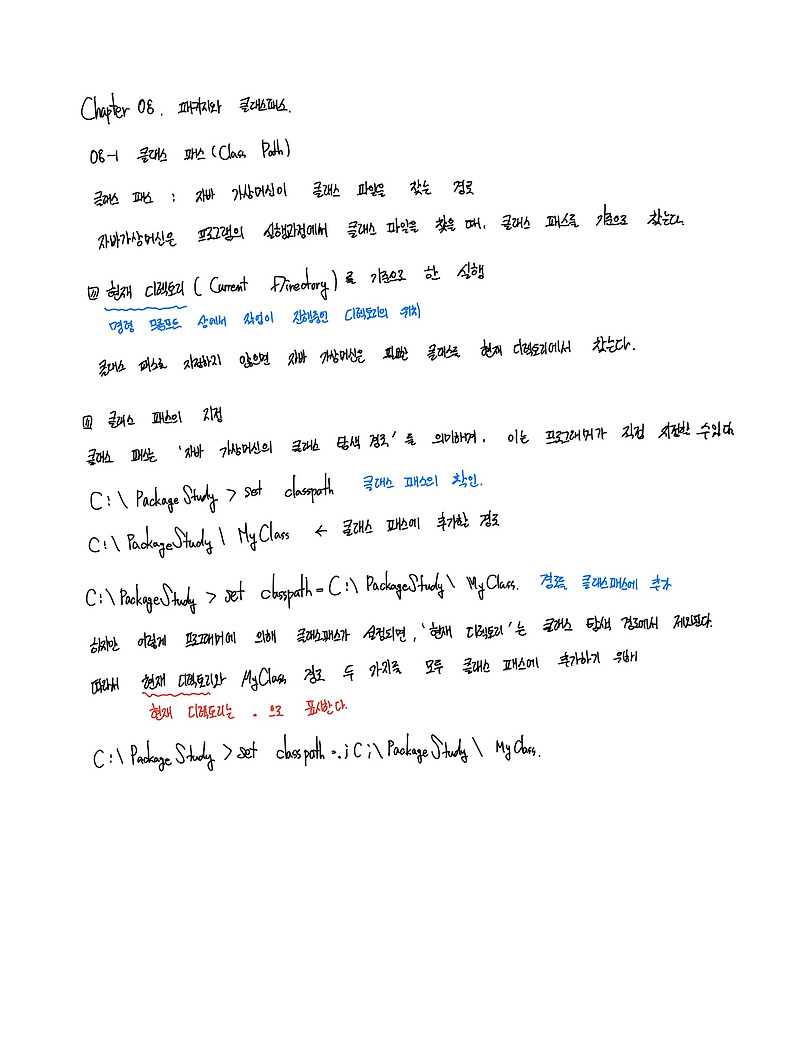 Chapter 08. 패키지와 클래스패스.
08-1 클래스 패스(Class Path)
클래스 패스 : 자바 가상머신이 클래스 파일을 찾는 경로
자바가상머신은 프로그램의 실행과정에서 클래스 파일을 찾을 때, 클래스 패스를 기준으로 찾는다.
현재 디렉토리 (Current Directory)를 기준으로 한 실행
명령 프롬프트 상에서 작업이 진행중인 디렉토리의 위치
클래스 패스를 지정하지 않으면 자바 가상머신은 필요한 클래스를 현재 디렉토리에서 찾는다.
클래스 패스의 지정
클래스 패스는 '자바 가상머신의 클래스 탐색 경로'를 의미하며, 이는 프로그래머가 직접 지정할 수있다
C:\PackageStudy > set classpath 클래스 패스의 확인.
C:\PackageStudy\MyClass ← 클래스 패스에 추가할 경로
C:\PackageStudy > set classpath=C:\PackageStudy\MyClass. 경로를 클래스패스에 추가
하지만 이렇게 프로그래머에 의해 클래스패스가 설정되면, '현재 디렉토리'는 클래스 탐색 경로에서 제외된다.
따라서 현재 디렉토리와 MyClass 경로 두 가지를 모두 클래스 패스에 추가하기 위해
현재 디렉토리는 . 으로 표시한다.
C:\PackageStudy > set classpath=.;C;\PackageStudy\MyClass.